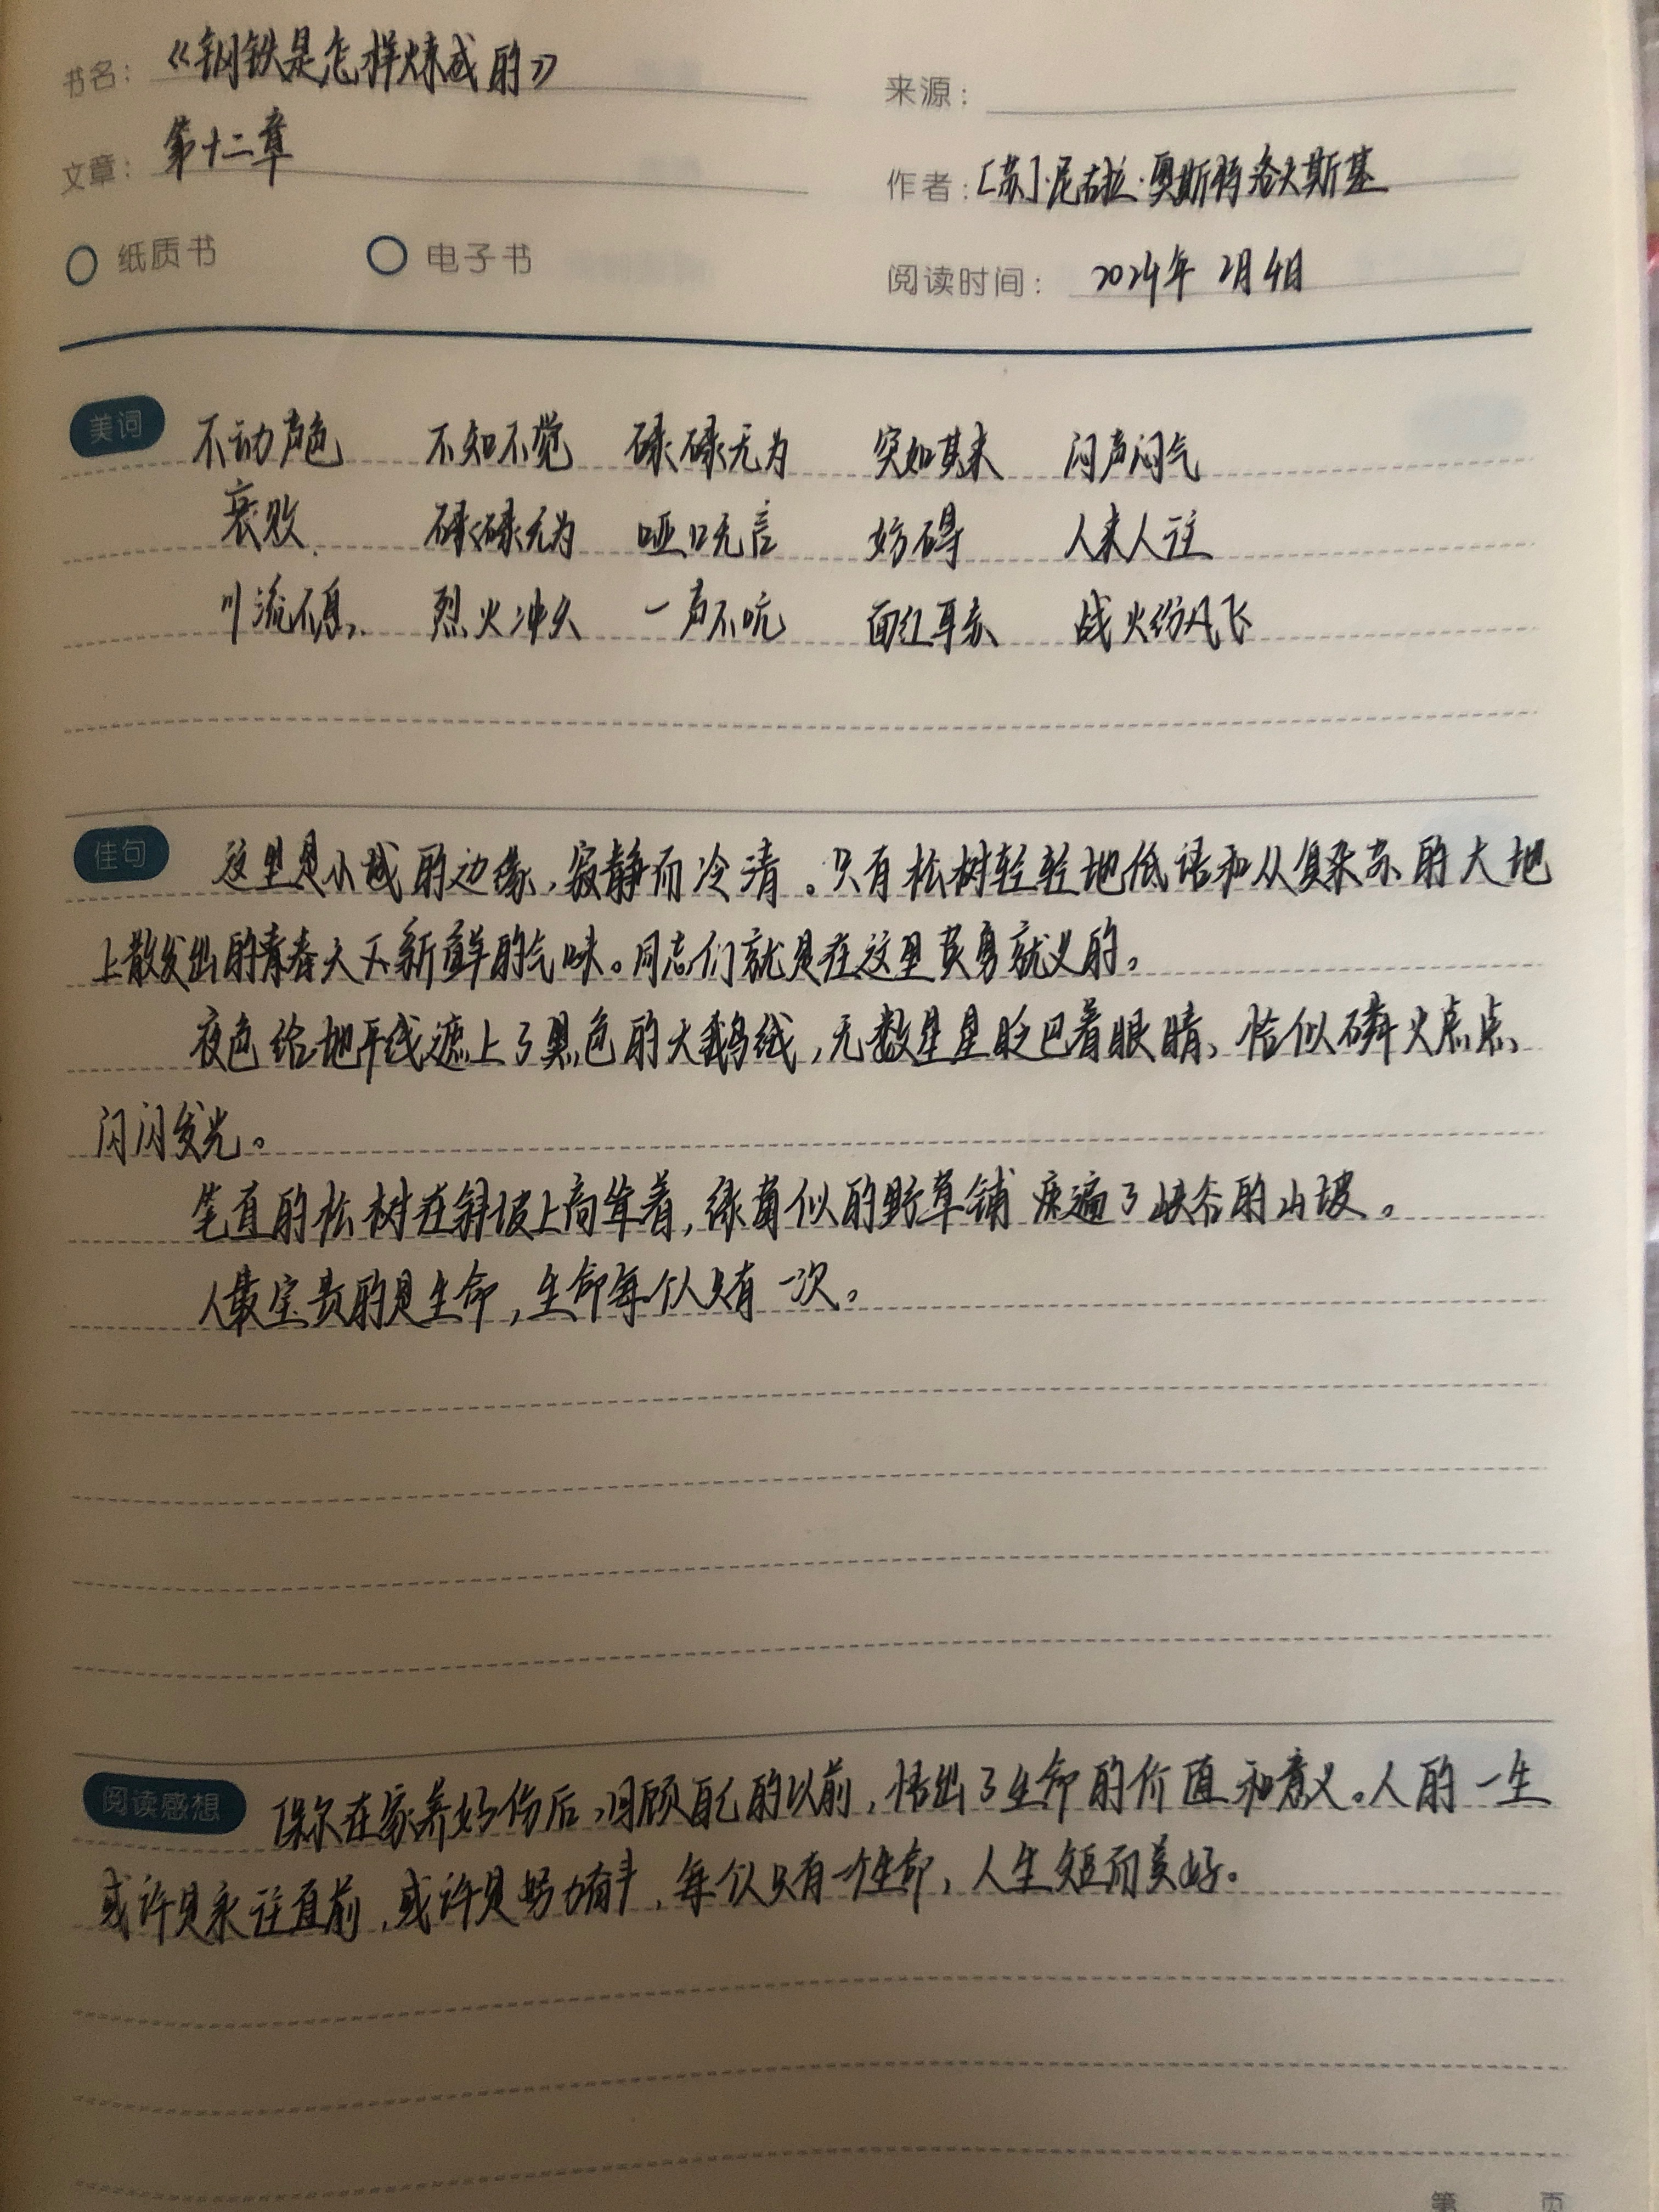 书名：《钢铁是怎样炼成的》
来源：
文章：第十二章
作者：[苏]·尼古拉·奥斯特洛夫斯基
纸质书 电子书
阅读时间：2024年2月4日
美词 不动声色 不知不觉 碌碌无为 突如其来 闷声闷气
衰败 碌碌无为 哑口无言 妨碍 人来人往
川流不息 烈火冲久 一声不吭 面红耳赤 战火纷风飞
佳句 这里是小城的边缘，寂静而冷清。只有松树轻轻地低语和从复杂苏的大地
上散发出的青春天下新鲜的气味。同志们就是在这里英勇就义的。
夜色给地平线遮上了黑色的天鹅绒，无数星星眨巴着眼睛、恰似磷火点点、
闪闪发光。
笔直的松树在斜坡上高耸着，绿茵似的野草铺 遍了峡谷的山坡。
人最宝贵的是生命，生命每个人只有一次。
阅读感想 保尔在家养好伤后，回顾自己的以前，悟出了生命的价值和意义。人的一生
或许是永往直前，或许是努力奋斗，每个人只有一个生命，人生短而美好。
第 页